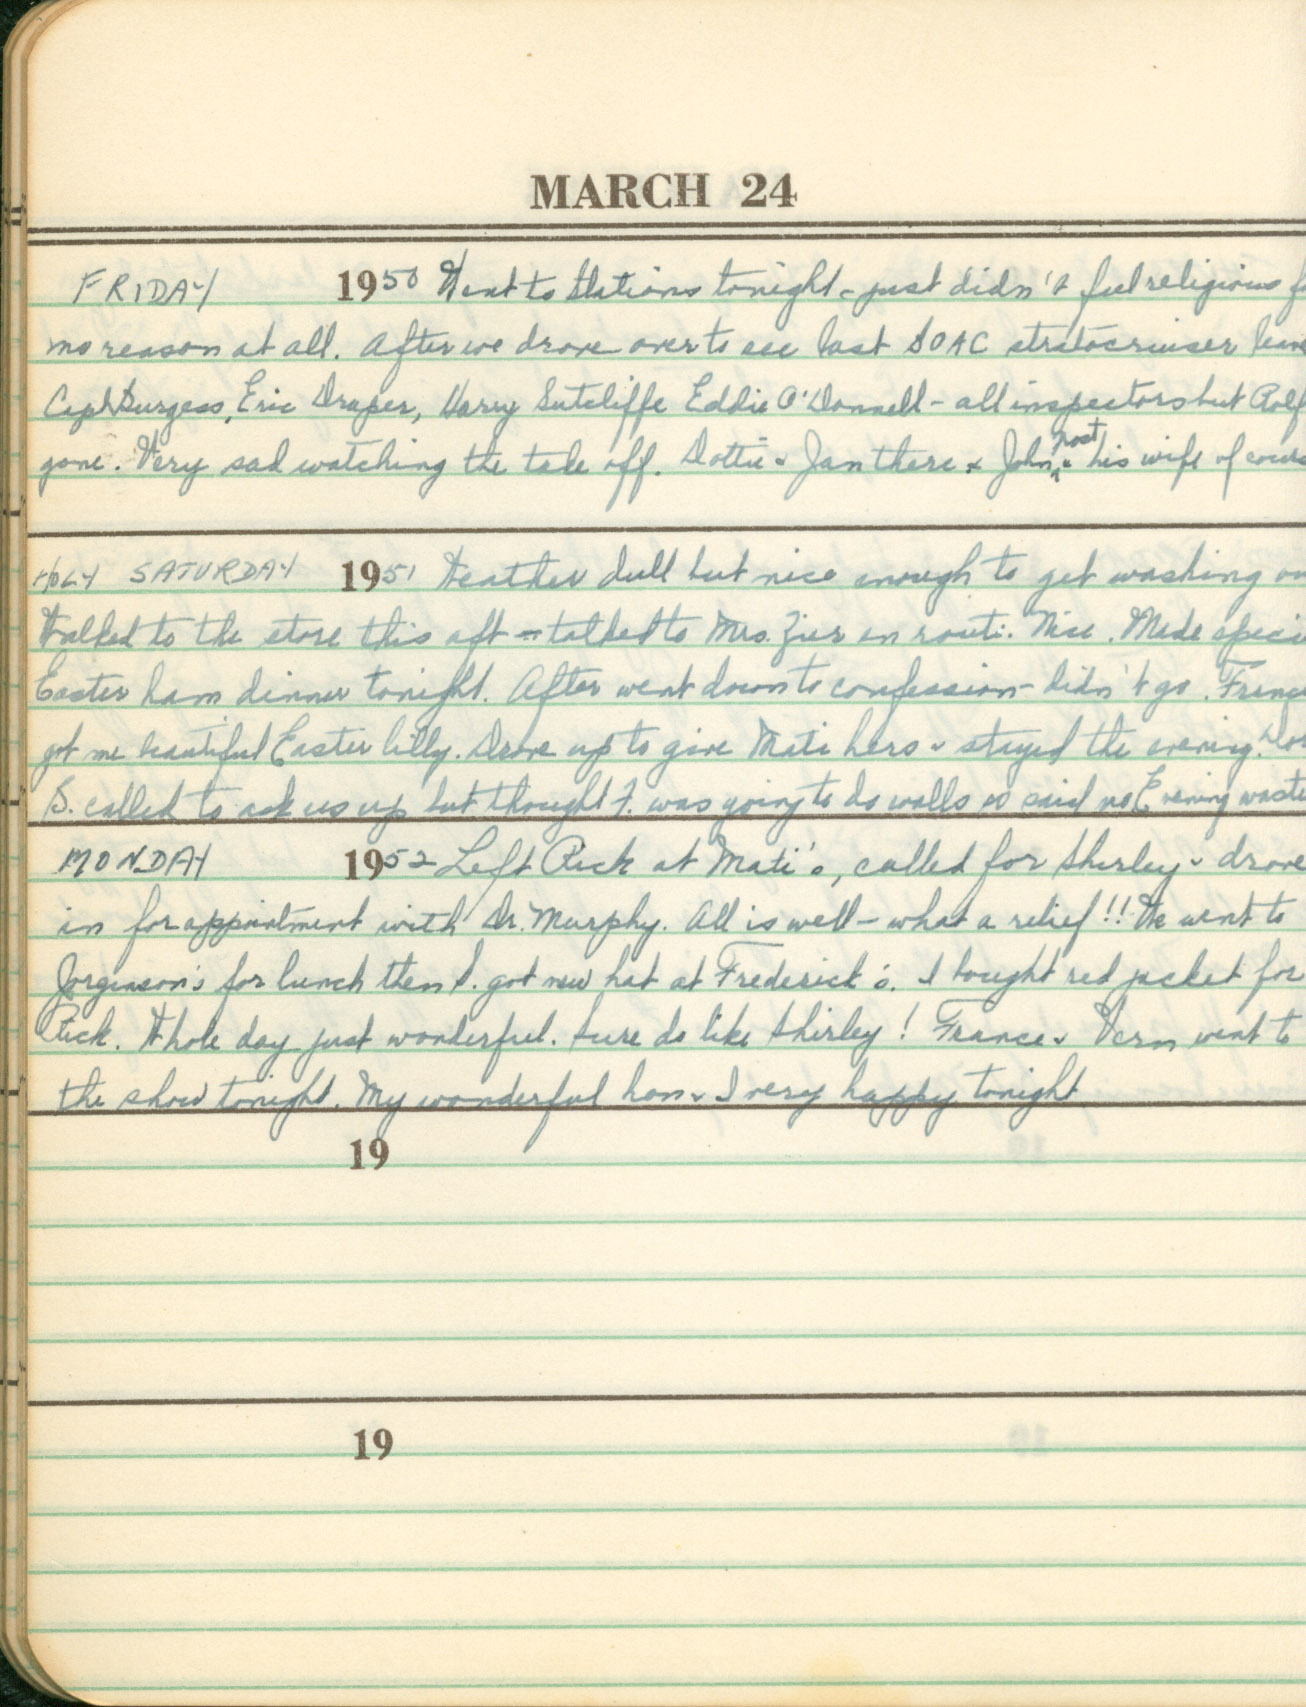 MARCH 24
FRIDAY 1950 Went to Stations tonight - just didn't feel religious
no reason at all. After we drove over to see last BOAC stratocruiser leave
Capt Burgess, Eric Draper, Harry Sutcliffe Eddie O'Donnell - all inspectors but Rolf
gone. Very sad watching the take off. Dottie & Jan there & John & not his wife of
HOLY SATURDAY 1951 Weather dull but nice enough to get washing
Walked to the store this aft - talked to Mrs. Zier en route. Nice. Made
Easter ham dinner tonight. After went down to confession - didn't go.
got me beautiful Easter lilly. Drove up to give Mati hers & stayed the evening.
S. called to ask us up but thought F. was going to do walls so said no Evening
MONDAY 1952 Left Rick at Mati's, called for Shirley & drove
in for appointment with Dr. Murphy. All is well - what a relief!! We went to
Jorgenson's for lunch then S. got new hat at Frederick's. I bought red jacket for
Rick. Whole day just wonderful. Sure do like Shirley! France & Vern went to
the show tonight. My wonderful hon & I very happy tonight
19
19